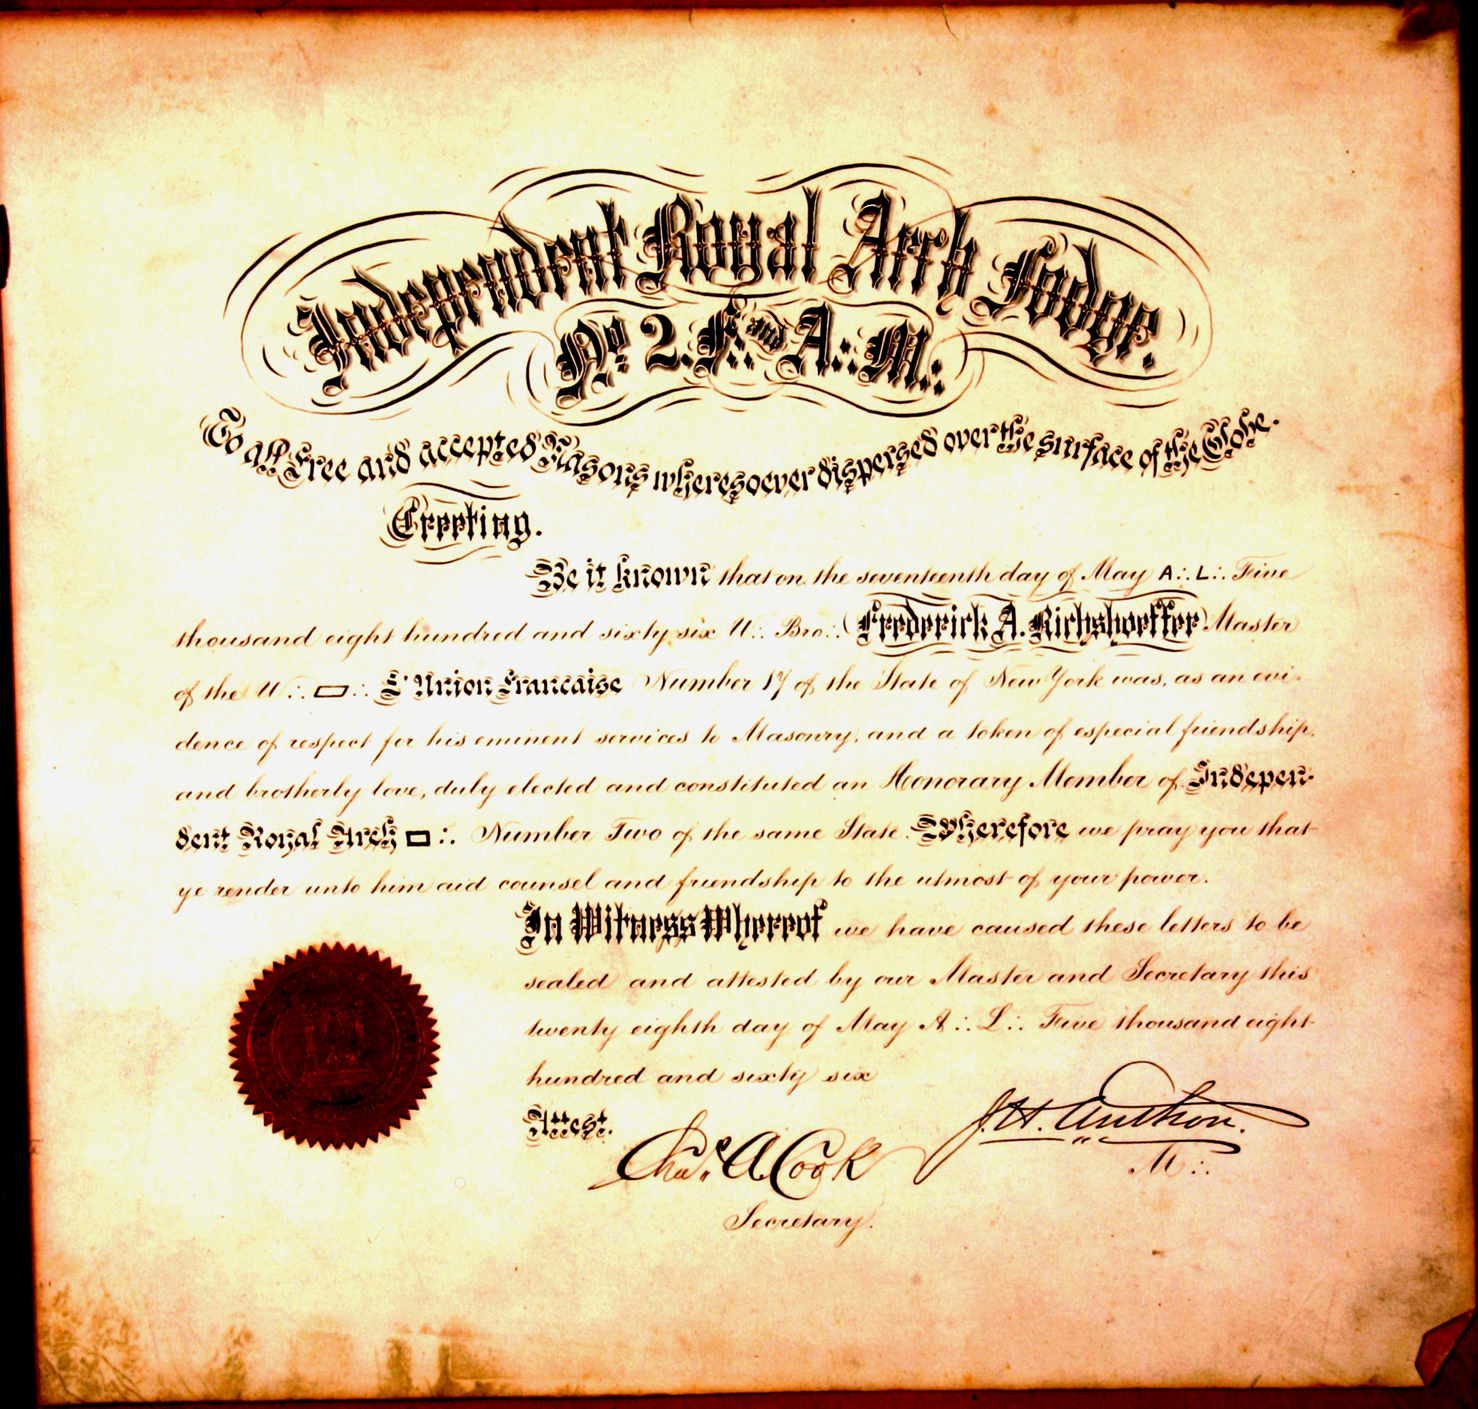 Independent Royal Arch Lodge.
No 2. F. and A∴ M∴
To all Free and accepted Masons wheresoever dispersed over the surface of the Globe.
Greeting.
Be it known that on the seventeenth day of May A∴ L∴ Five
thousand eight hundred and sixty six W∴ Bro∴ Frederick A. Richshoeffer Master
of the W∴ ▭∴ L'Union Francaise Number 17 of the State of New York was, as an evi-
dence of respect for his eminent services to Masonry, and a token of especial friendship,
and brotherly love, duly elected and constituted an Honorary Member of Indepen-
dent Royal Arch ▭∴ Number Two of the same State. Wherefore we pray you that
ye render unto him aid counsel and friendship to the utmost of your power.
In Witness Whereof we have caused these letters to be
sealed and attested by our Master and Secretary this
twenty eighth day of May A∴ L∴ Five thousand eight
hundred and sixty six
Attest.
J. H. Anthon.
M∴
Chas. A. Cook
Secretary.